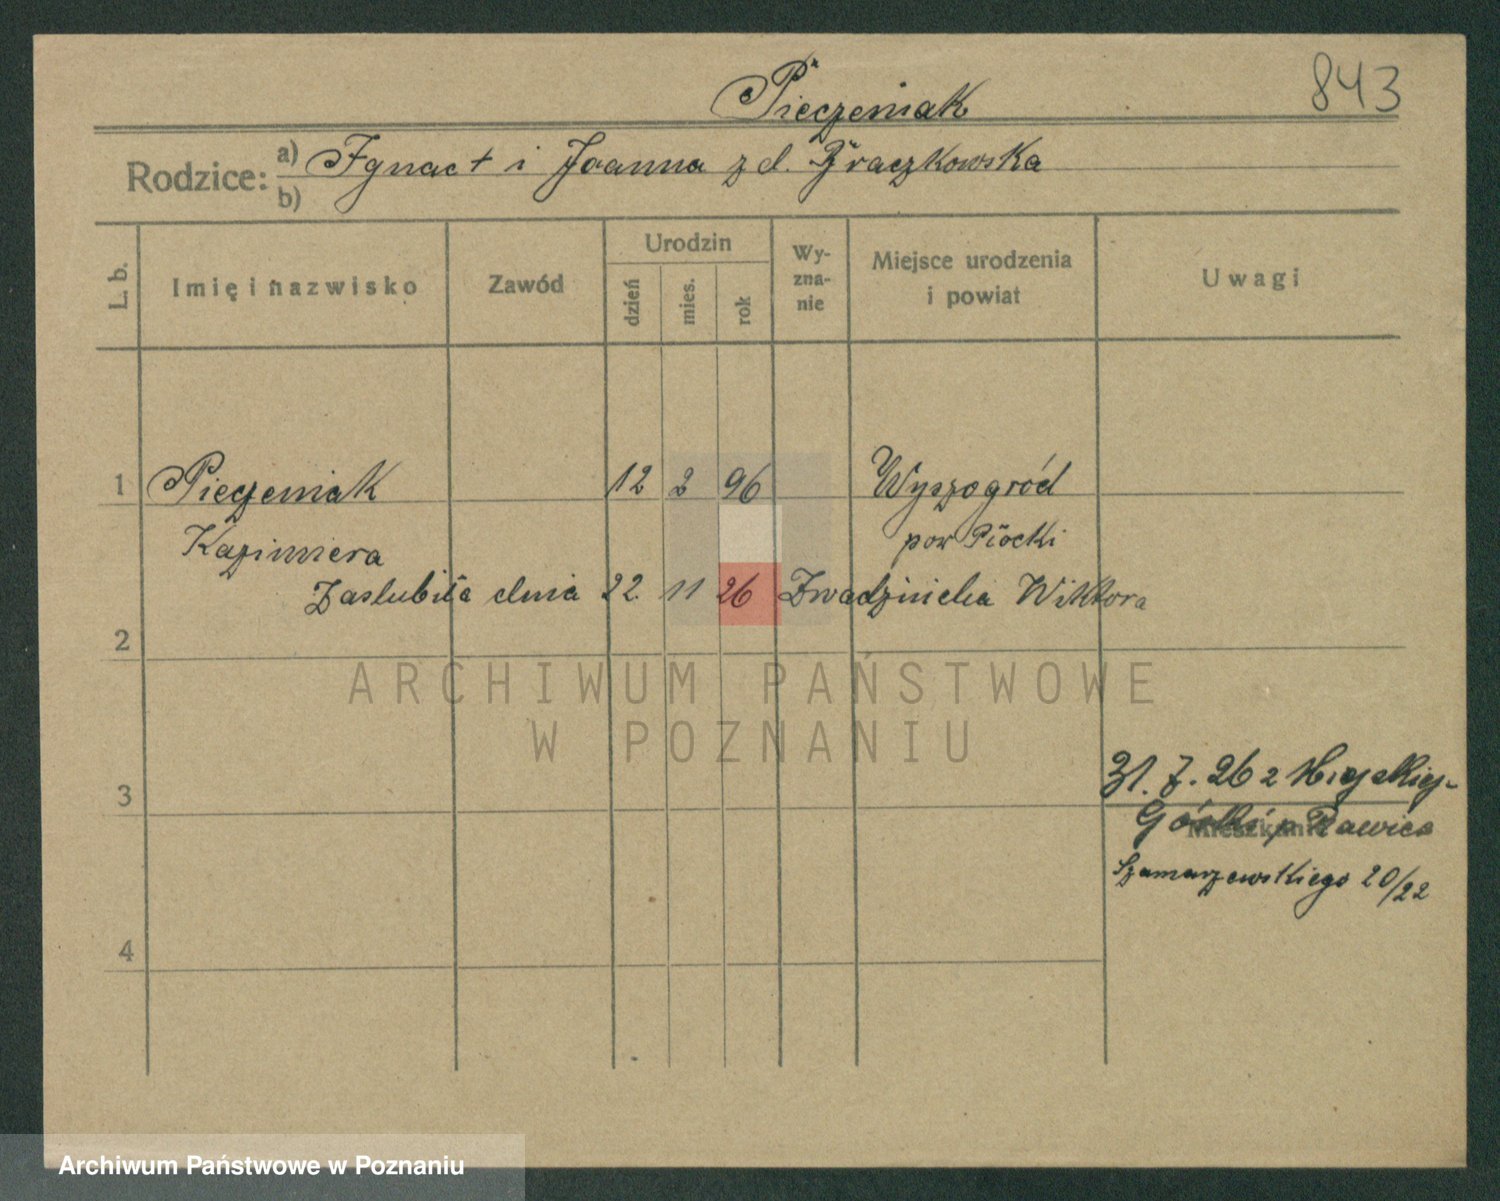 Pieczeniak
843
Rodzice: a) Ignac + i Joanna z d.
b)
L. b.
Imię i nazwisko
Zawód
Urodzin
dzień
mies.
rok
Wy-
zna-
nie
Miejsce urodzenia
i powiat
Uwagi
1 Pieczeniak 12 2 96 Wyszogród
Kazimiera pow Płocki
Zaślubiła dnia 22. 11 26 Wiktora
2
ARCHIWUM PAŃSTWOWE
W POZNANIU
31. 7. 26 z Miejskiej-
3
Górki p Rawicz
Szamarzewskiego 20/22
4
Archiwum Państwowe w Poznaniu